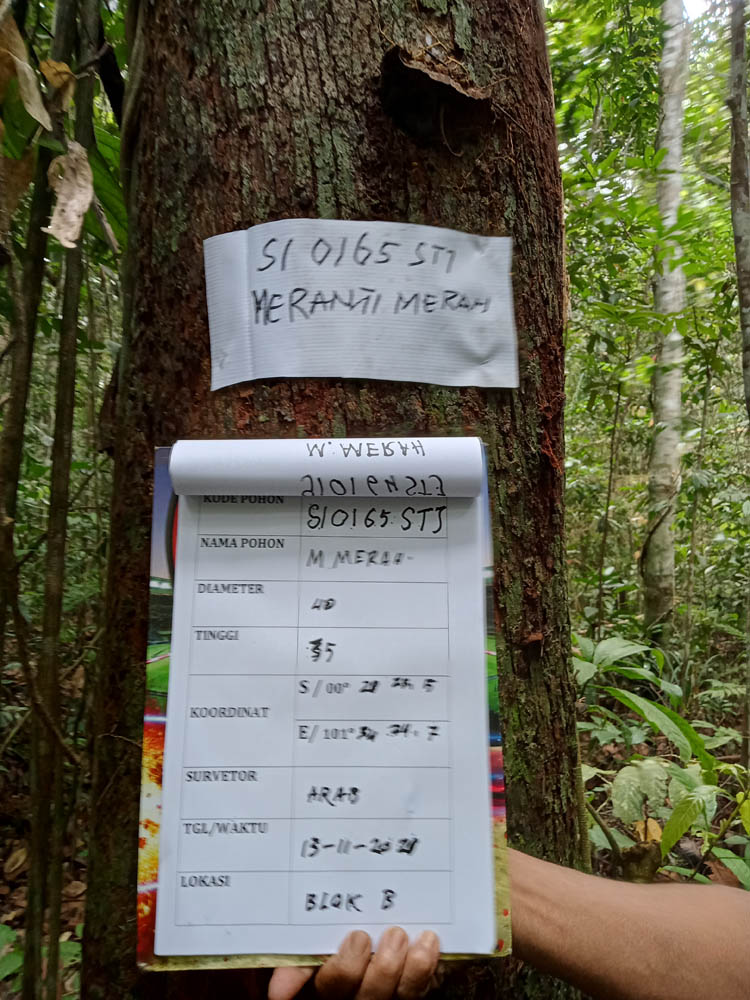 SI 0165 STJ
MERANTI MERAH
M. MERAH
SI0164 STJ
KODE POHON SI 0165 STJ
NAMA POHON M MERAH
DIAMETER 40
TINGGI 35
KOORDINAT S / 00°
E/ 101°
SURVETOR ARAB
TGL/WAKTU 13-11-20
LOKASI BLOK B